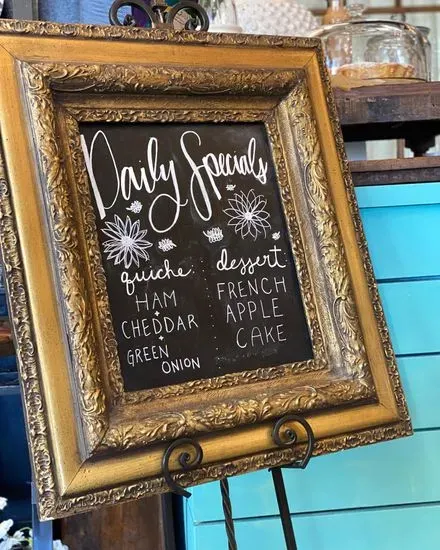 Daily Specials
quiche
HAM
+
CHEDDAR
+
GREEN
ONION
dessert
FRENCH
APPLE
CAKE